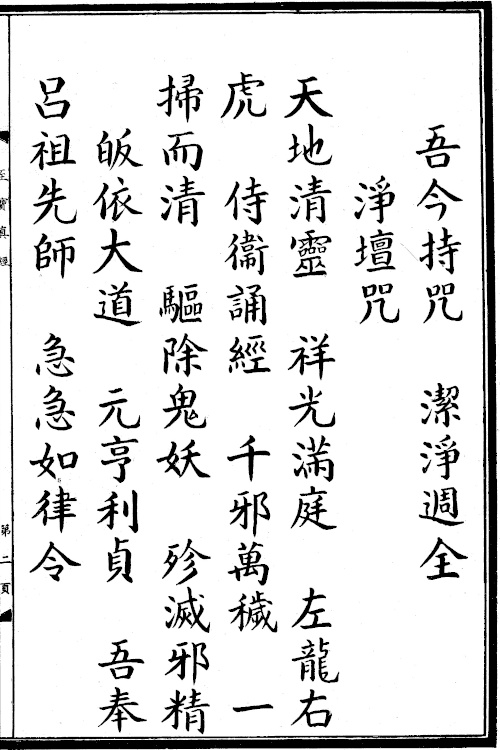 吾今持咒　潔淨週全
淨壇咒
天地清靈　祥光滿庭　左龍右
虎　侍衞誦經　千邪萬穢　一
掃而清　驅除鬼妖　殄滅邪精
皈依大道　元亨利貞　吾奉
呂祖先師　急急如律令
至寶真經
第二頁